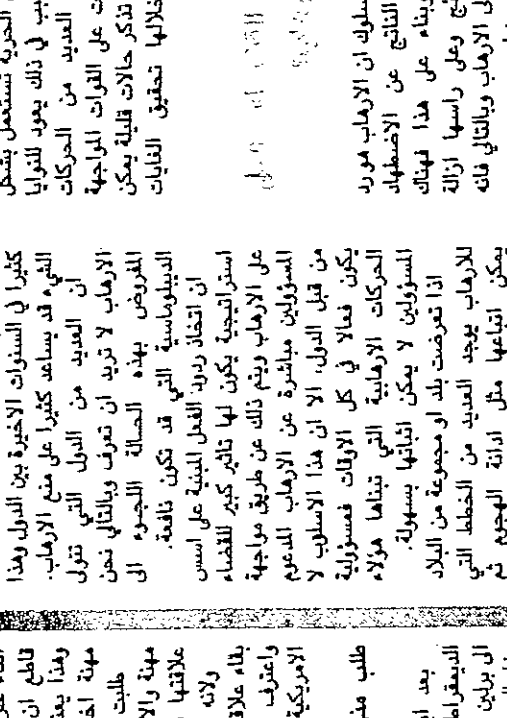 الحرية تستعمل بشكل
بب في ذلك يعود للنوايا
العديد من الحركات
ت على القوات المواجهة
تذكر حالات قليلة يمكن
خلالها تحقيق الغايات
سلوك ان الارهاب هو رد
الناتج عن الاضطهاد
وبناء على هذا فهناك
ج وعلى راسها ازالة
الارهاب وبالتالي فانه
كثيرا في السنوات الاخيرة بين الدول وهذا
الشيء قد يساعد كثيرا على منع الارهاب.
ان العديد من الدول التي تتول
الارهاب لا تريد ان تعرف وبالتالي نحن
المفروض بهذه الحسالة اللجوء الى
الديبلوماسية التي قد تكون نافعة.
ان اتخاذ ردود الفعل المبنية على اسس
استراتيجية يكون لها تاثير كبير للقضاء
على الارهاب ويتم ذلك عن طريق مواجهة
المسؤولين مباشرة عن الارهاب المدعوم
من قبل الدول، الا ان هذا الاسلوب لا
يكون فعالا في كل الاوقات فمسؤولية
الحركات الارهابية التي تبناها هولاء
المسؤولين لا يمكن اثباتها بسهولة.
اذا تعرضت بلد او مجموعة من البلاد
للارهاب يوجد العديد من الخطط التي
يمكن اتباعها مثل ادانة الهجوم ثم
قاطع ان
وهذا يعني
مهنة اخ
طلبت
مهنة والا
علاقتها
ولانه
بقاء علاقة
واعترف
الامريكية
طلب من
بعد ا
الديمقراط
الى برلين